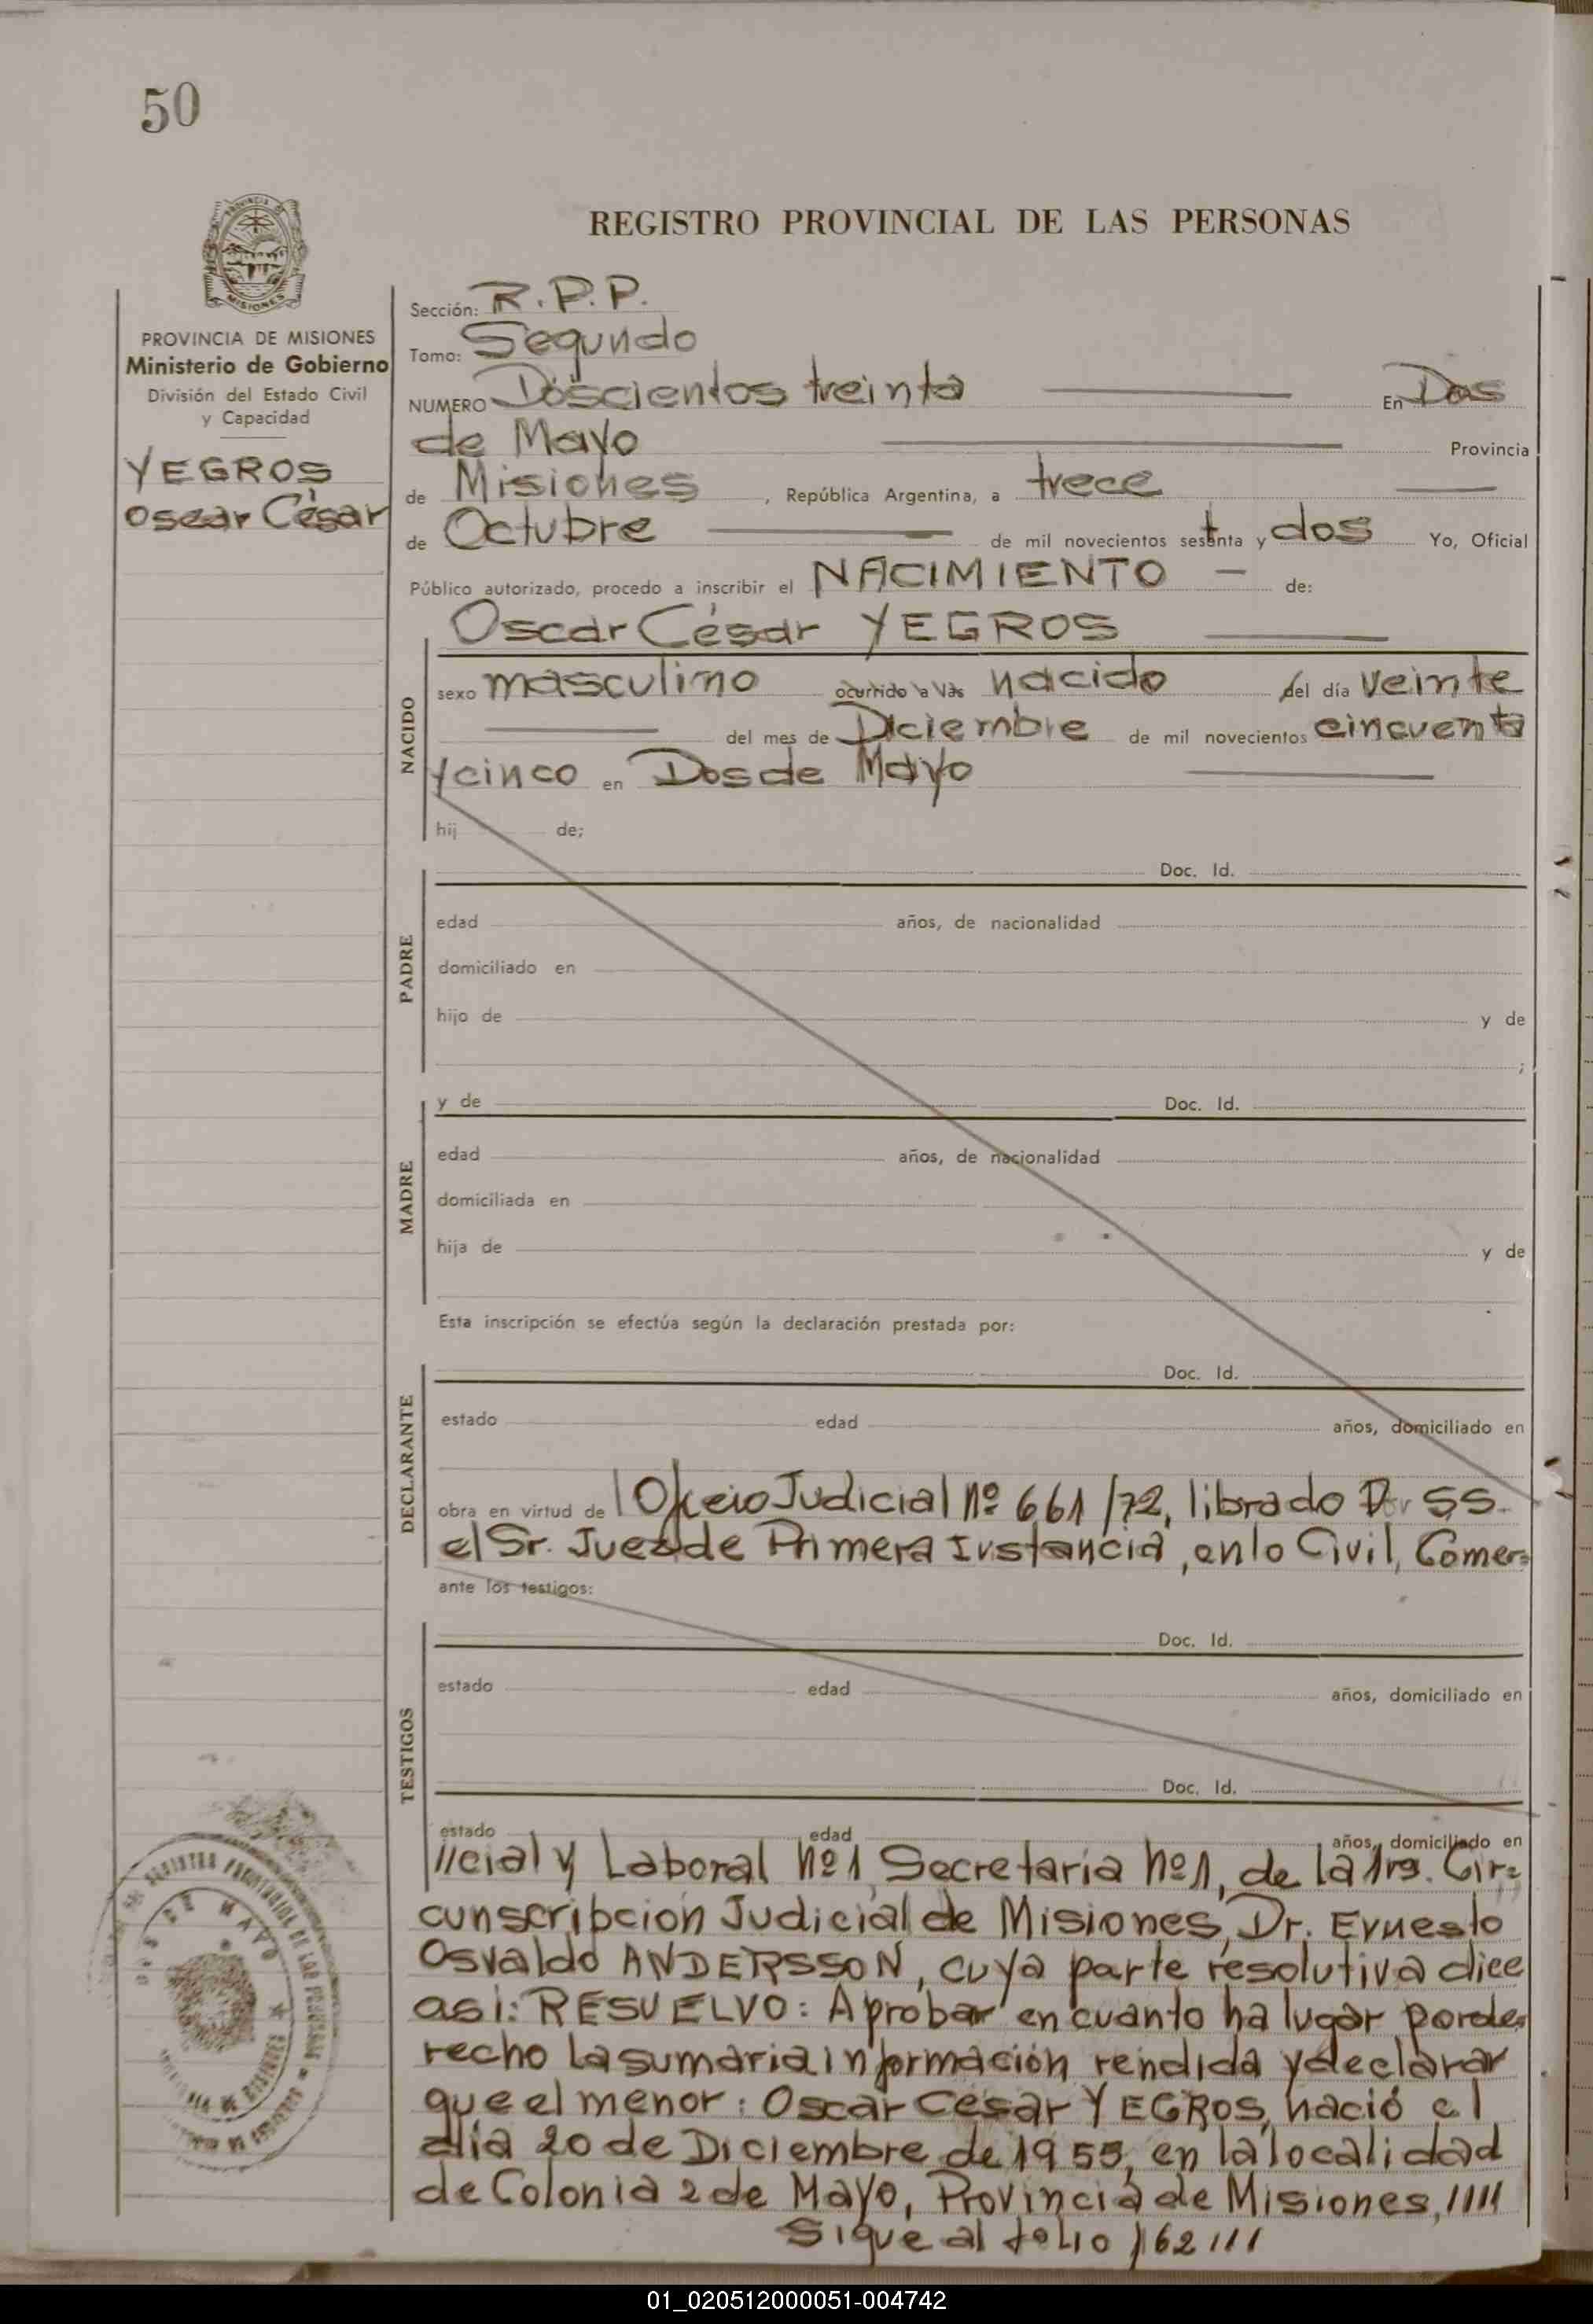 50
REGISTRO PROVINCIAL DE LAS PERSONAS
MISIONES
PROVINCIA DE MISIONES
Ministerio de Gobierno
División del Estado Civil
y Capacidad
YEGROS
Oscar César
Sección: R.P.P.
Tomo: Segundo
NUMERO Doscientos treinta En Dos
de Mayo Provincia
de Misiones, República Argentina, a trece
de Octubre de mil novecientos setenta y dos Yo, Oficial
Público autorizado, procedo a inscribir el NACIMIENTO - de:
Oscar César YEGROS
NACIDO
sexo masculino ocurrido a las nacido del día veinte
del mes de Diciembre de mil novecientos cincuenta
y cinco en Dos de Mayo
hij de;
PADRE
Doc. Id.
edad años, de nacionalidad
domiciliado en
hijo de y de
;
MADRE
y de Doc. Id.
edad años, de nacionalidad
domiciliada en
hija de y de
Esta inscripción se efectúa según la declaración prestada por:
DECLARANTE
Doc. Id.
estado edad años, domiciliado en
obra en virtud de Oficio Judicial nº 661/72, librado Por SS.
el Sr. Juez de Primera Instancia, en lo Civil, Comer=
ante los testigos:
TESTIGOS
Doc. Id.
estado edad años, domiciliado en
Doc. Id.
estado edad años, domiciliado en
//cial y Laboral nº1, Secretaria nº1, de la 1ra. Cir=
cunscripcion Judicial de Misiones, Dr. Ernesto
Osvaldo ANDERSSON, cuya parte resolutiva dice
asi: RESUELVO: Aprobar en cuanto ha lugar por de=
recho la sumaria información rendida y declarar
que el menor: Oscar César YEGROS, nació el
día 20 de Diciembre de 1955, en la localidad
de Colonia 2 de Mayo, Provincia de Misiones, ////
Sigue al folio 162 ///
01_020512000051-004742